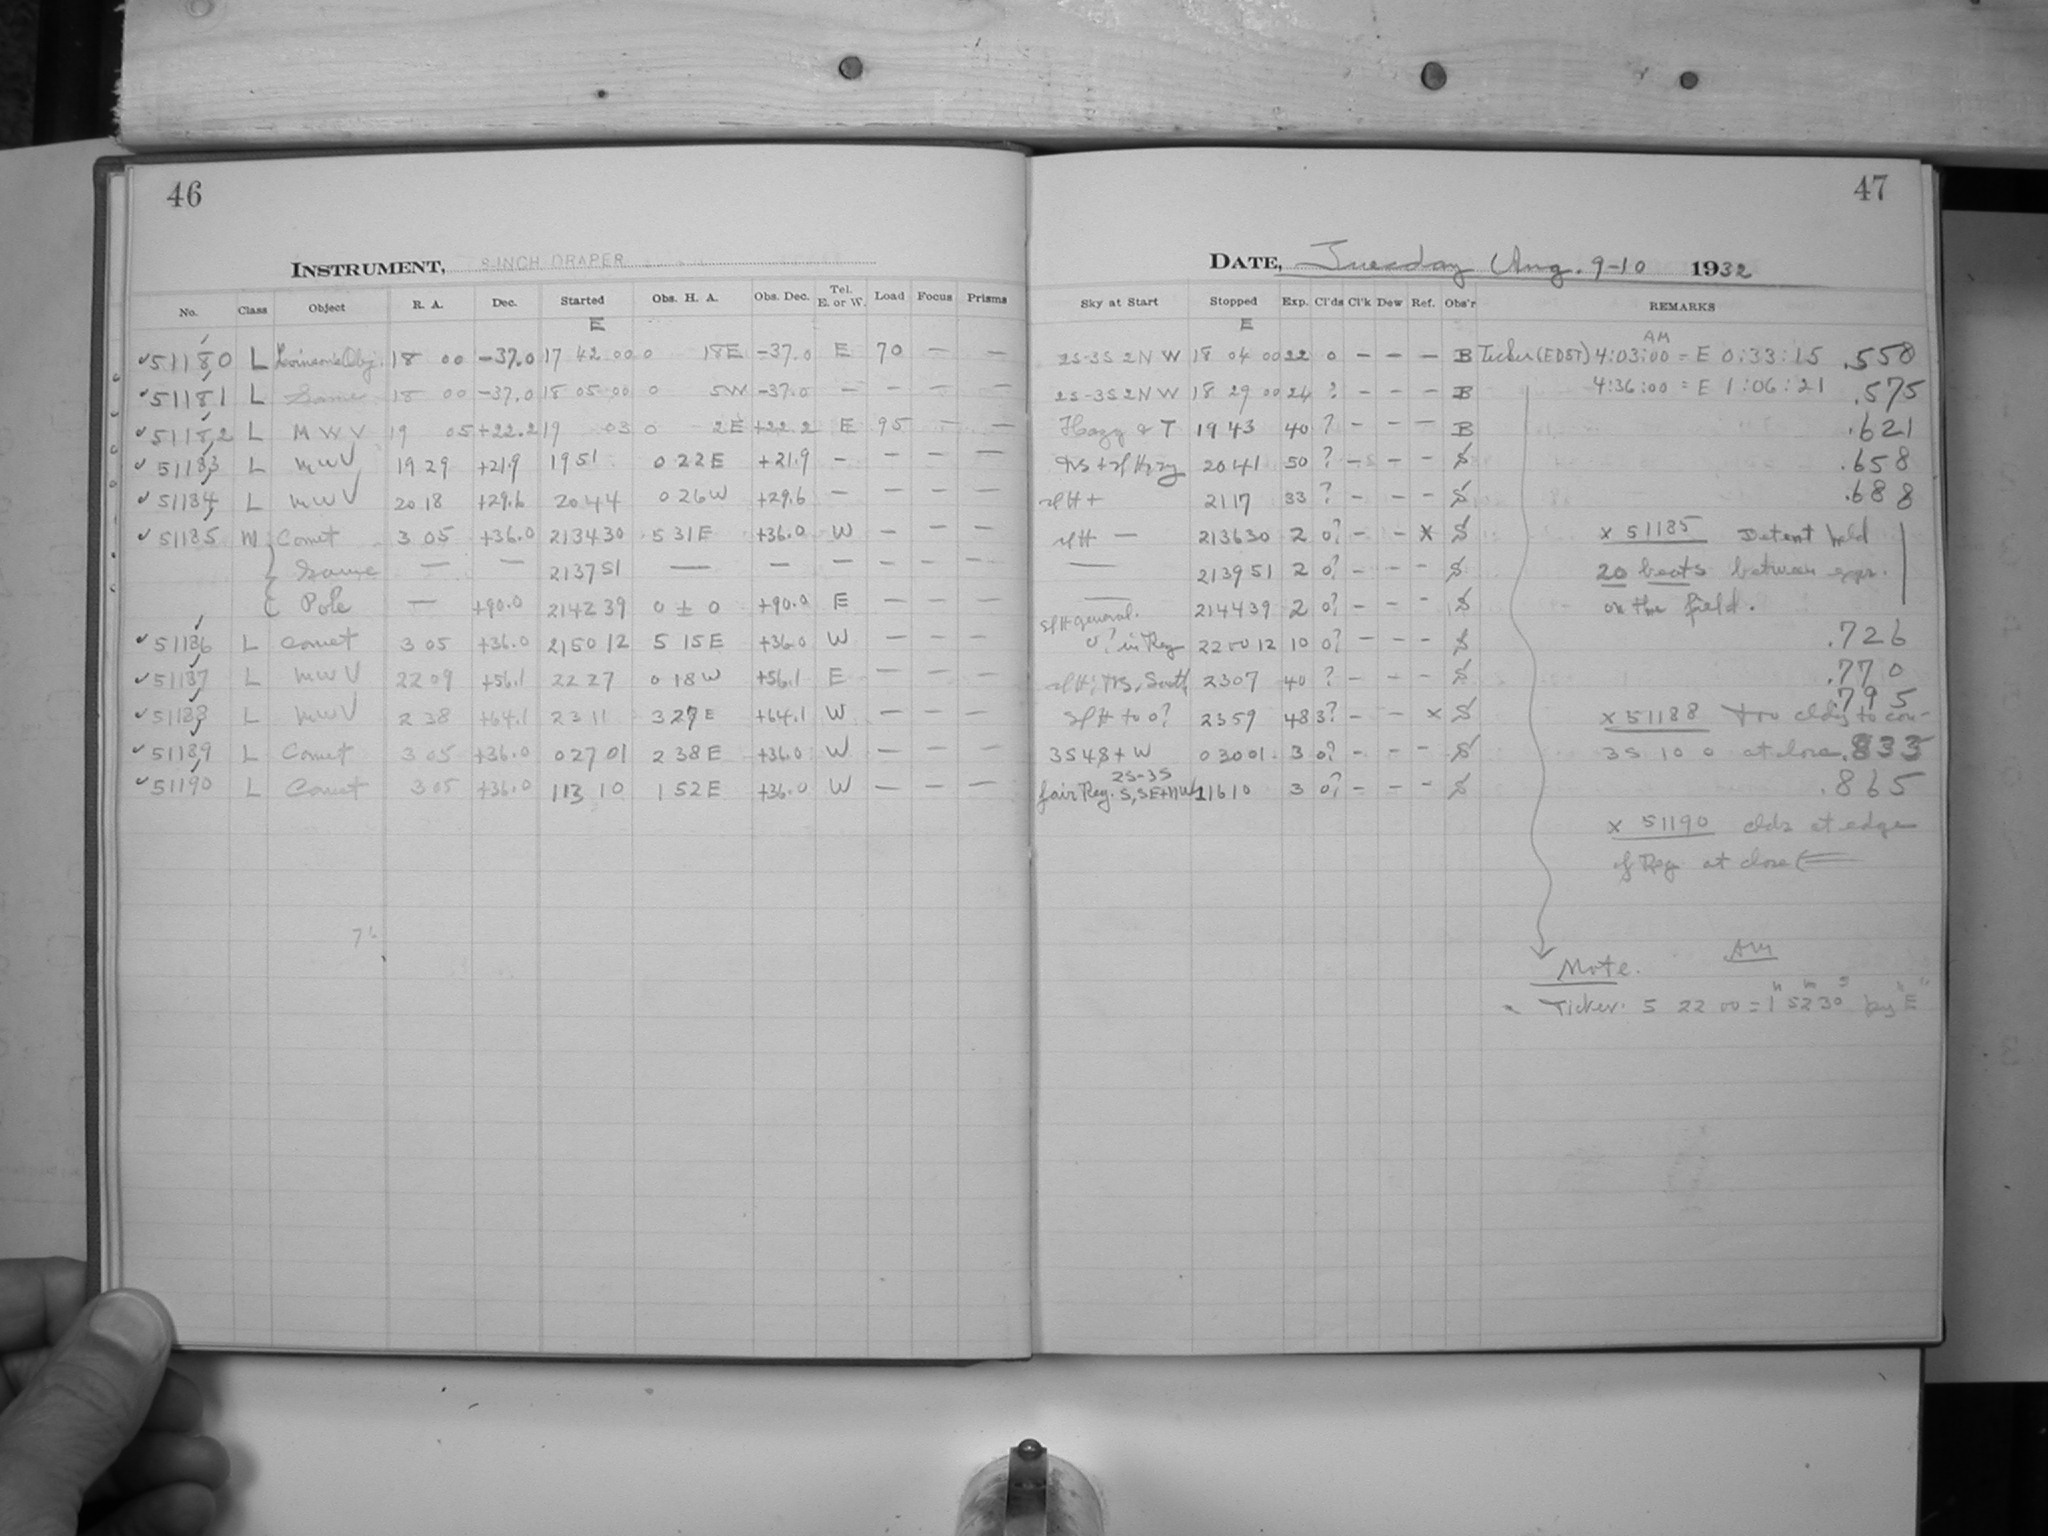 46
INSTRUMENT, 8-INCH DRAPER
No. Class Object R. A. Dec. Started Obs. H. A. Obs. Dec. Tel. E. or W. Load Focus Prisms
E
51180 L Obj. 18 00 -37.0 17 42 00 0 18E -37.0 E 70 — —
51181 L Same 18 00 -37.0 18 05 00 0 5W -37.0 — — — —
51182 L M W V 19 05 +22.2 19 03 0 2E +22.2 E 95 — —
51183 L MWV 19 29 +21.9 19 51 0 22E +21.9 — — — —
51184 L MWV 20 18 +29.6 20 44 0 26W +29.6 — — — —
51185 M Comet 3 05 +36.0 21 34 30 5 31E +36.0 W — — —
Same — — 21 37 51 — — — — — —
Pole — +90.0 21 42 39 0 ± 0 +90.0 E — — —
51186 L Comet 3 05 +36.0 21 50 12 5 15E +36.0 W — — —
51187 L MWV 22 09 +56.1 22 27 0 18W +56.1 E — — —
51188 L MWV 2 38 +64.1 23 11 3 27E +64.1 W — — —
51189 L Comet 3 05 +36.0 0 27 01 2 38E +36.0 W — — —
51190 L Comet 3 05 +36.0 1 13 10 1 52E +36.0 W — — —
47
DATE, Tuesday Aug. 9-10 1932
Sky at Start Stopped Exp. Cl'ds Cl'k Dew Ref. Obs'r REMARKS
E
AM
2S-3S 2N W 18 04 00 22 0 — — — B Ticker (EDST) 4:03:00 = E 0:33:15 .558
2S-3S 2N W 18 29 00 24 ? — — — B 4:36:00 = E 1:06:21 .575
Hazy & T 19 43 40 ? — — — B .621
20 41 50 ? — — — S .658
slH + 21 17 33 ? — — — S .688
slH — 21 36 30 2 0? — — x S x 51185 Detent held
— 21 39 51 2 0? — — — S 20 beats between exps.
— 21 44 39 2 0? — — — S on the field.
slH general.
0? in Reg 22 00 12 10 0? — — S .726
slH, South 23 07 40 ? — — — S .770
.795
slH to 0? 23 59 48 3? — — x S x 51188 Too cldy to con-
3S 4S + W 0 30 01 3 0? — — — S 3S 10 0 at close .833
2S-3S
fair Reg. S, SE + NW 1 16 10 3 0? — — — S .865
x 51190 clds at edge
of Reg at close
Note. AM
Ticker. 5 22 00 = 1h 52m 30s by "E"